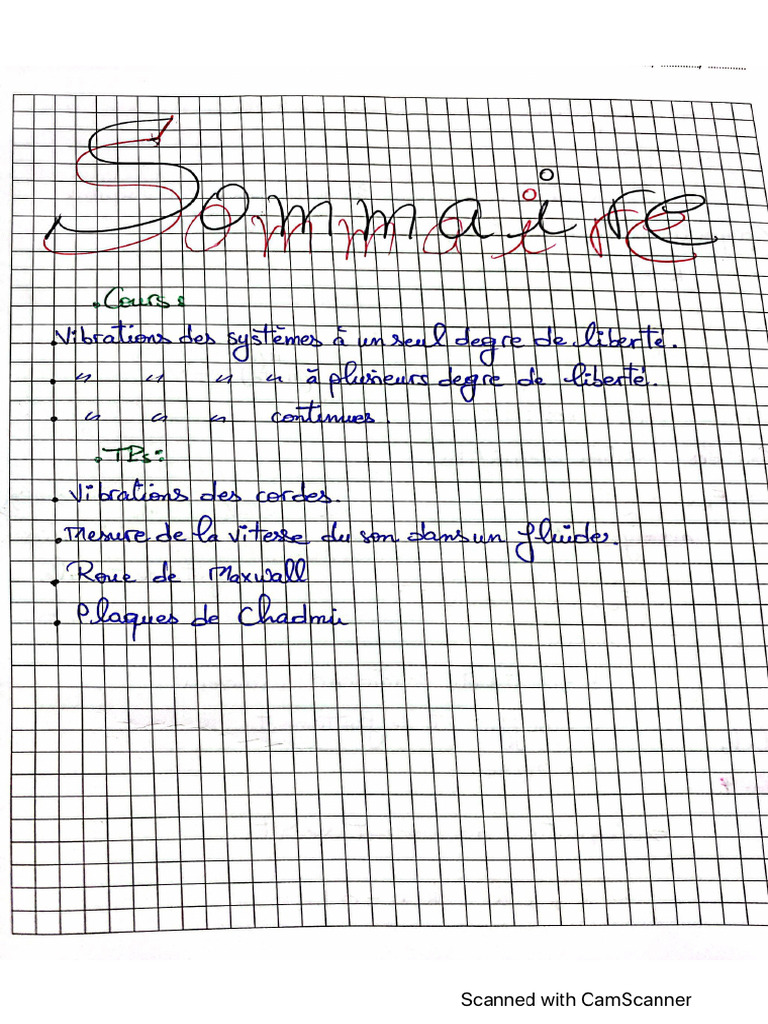 Sommaire
. Cours :
. Vibrations des systèmes à un seul degre de liberté.
. " " " " à plusieurs degre de liberté.
. " " " continues.
. TPs :
. Vibrations des cordes.
. Mesure de la vitesse du son dans un fluides.
. Roue de Maxwall
. Plaques de Chadmii
Scanned with CamScanner